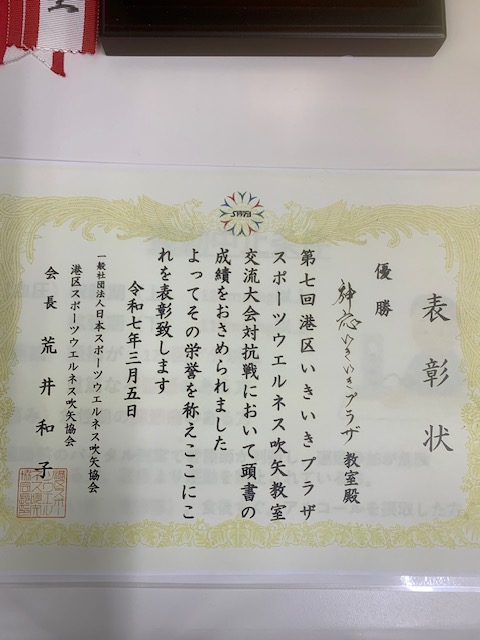 表彰状
優勝
神応いきいきプラザ教室殿
第七回港区いきいきプラザ
スポーツウエルネス吹矢教室
交流大会対抗戦において頭書の
成績をおさめられました
よってその栄誉を称えここにこ
れを表彰致します
令和七年三月五日
一般社団法人日本スポーツウエルネス吹矢協会
港区スポーツウエルネス吹矢協会
会長 荒井和子